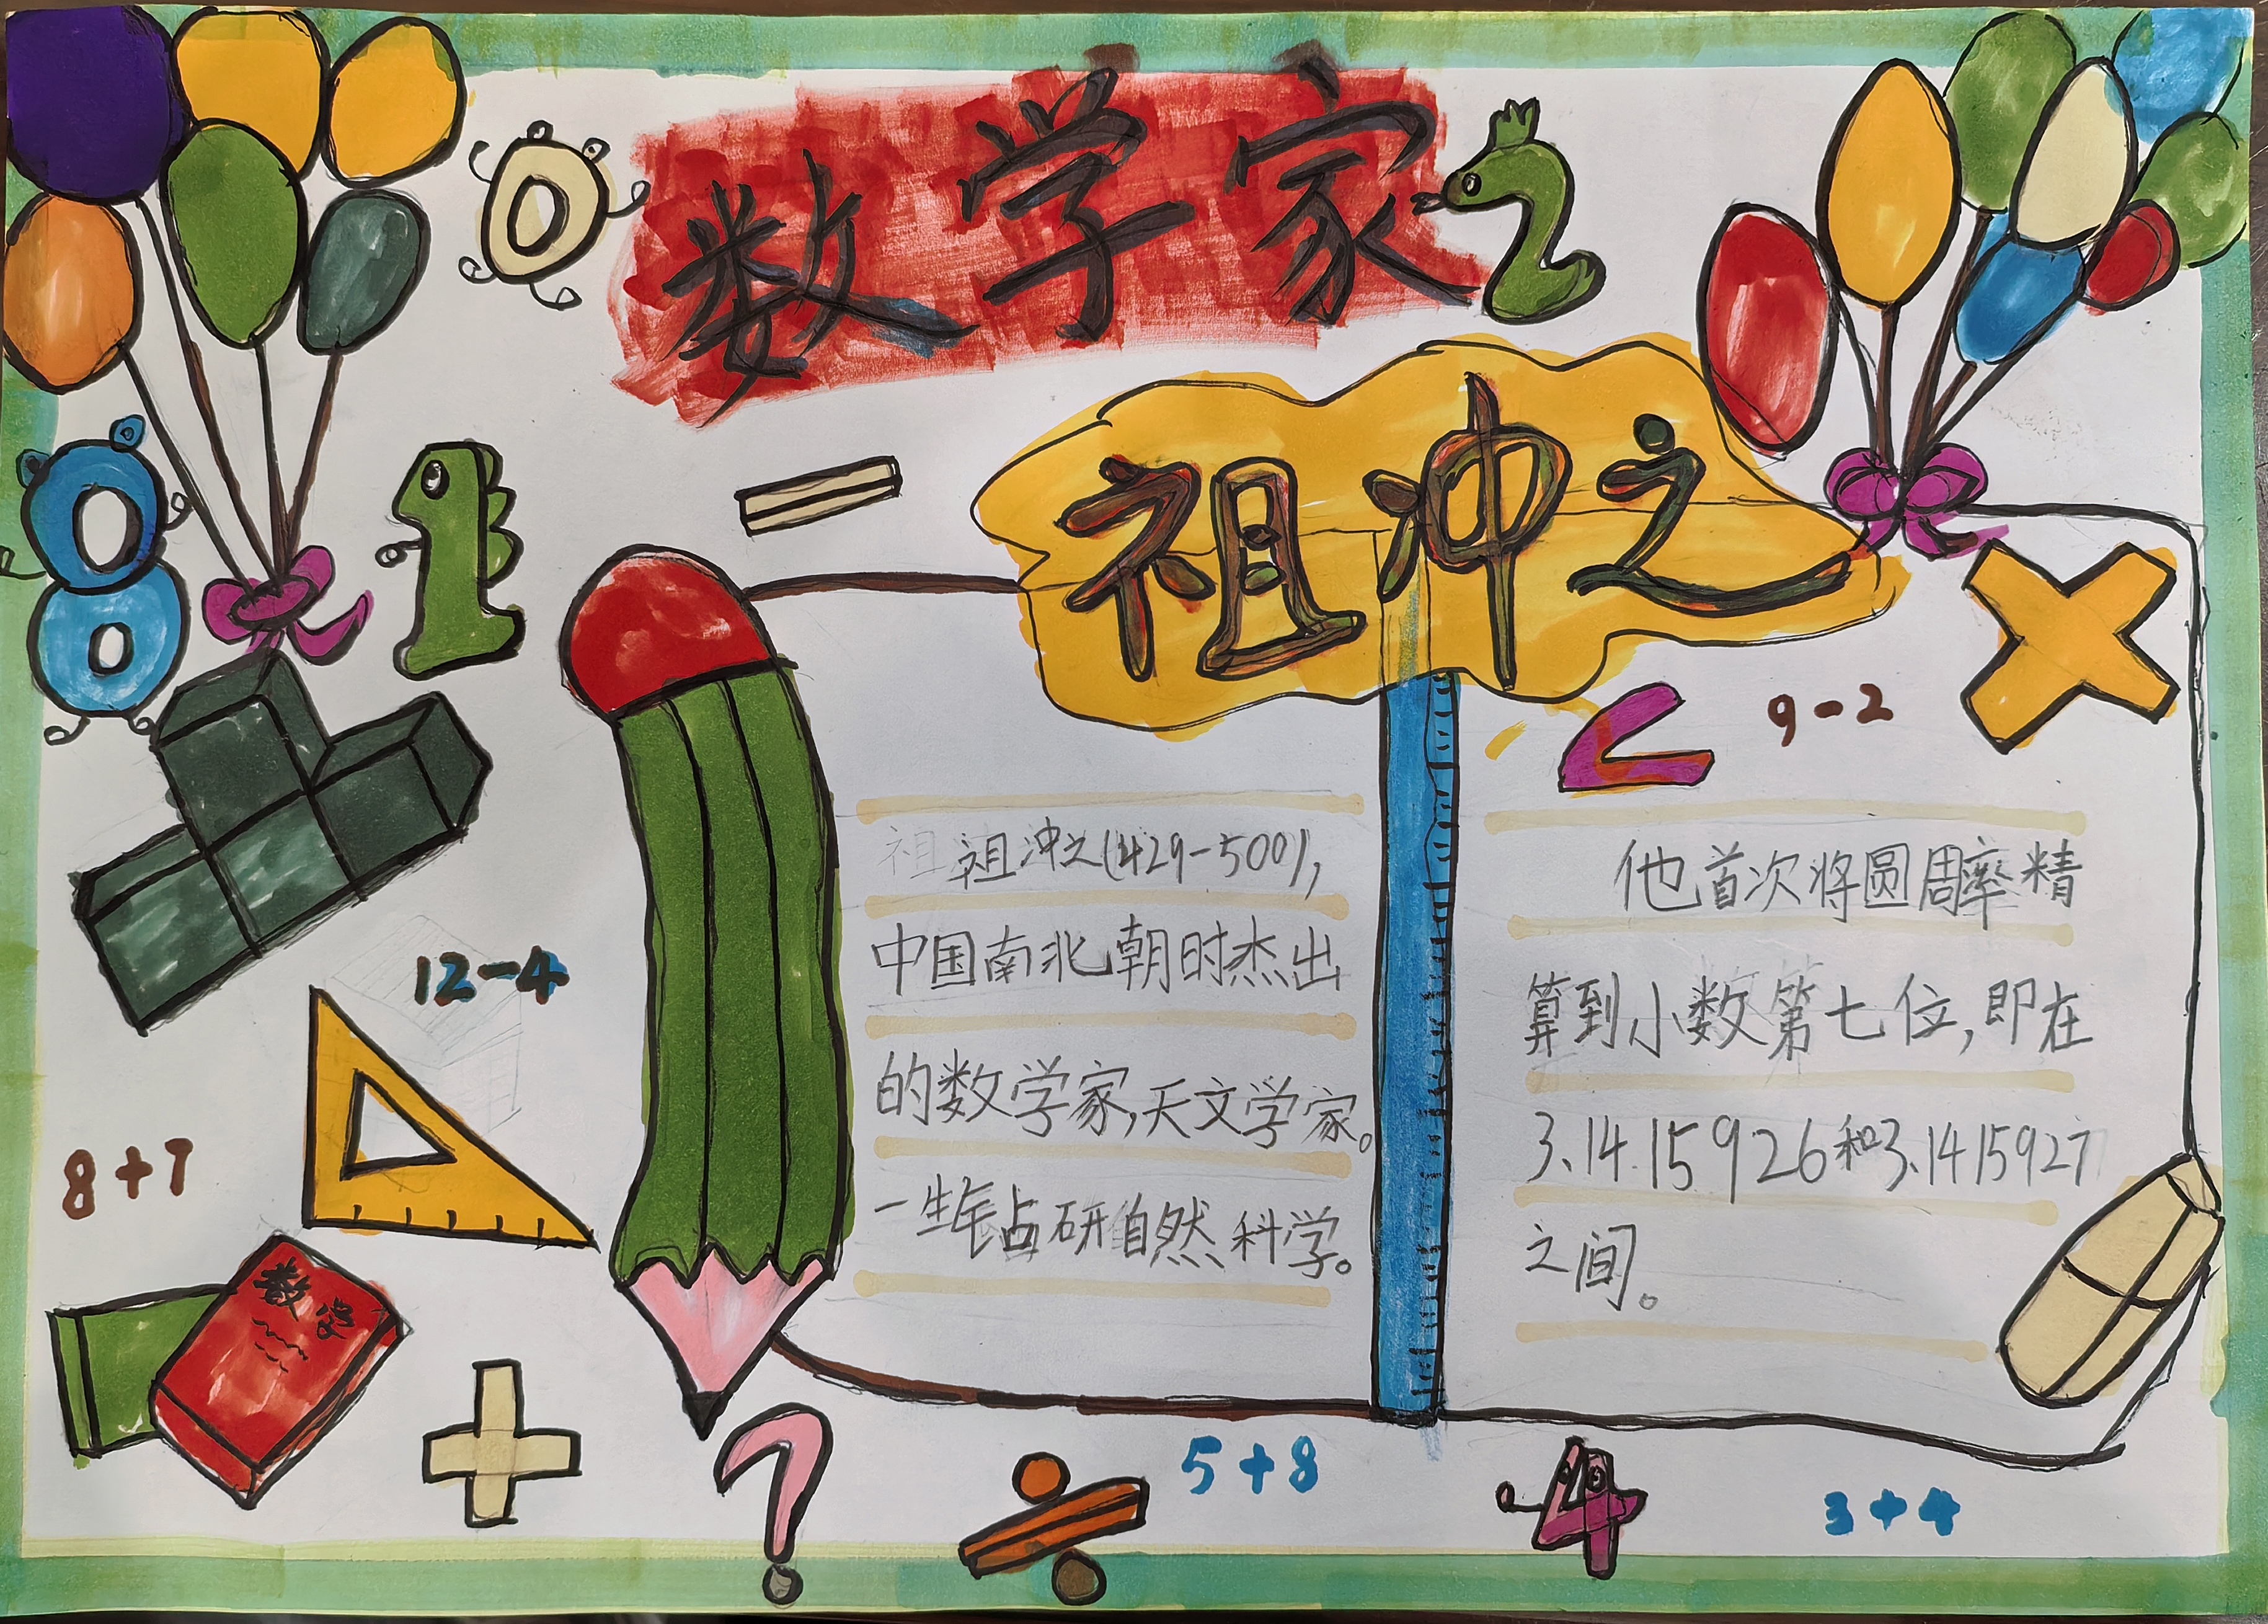 数学家
祖冲之
9-2
祖祖冲之(429-500),
中国南北朝时杰出
的数学家,天文学家。
一生钻研自然科学。
他首次将圆周率精
算到小数第七位,即在
3.14.15926和3.1415927
之间。
12-4
8+7
数学
5+8
4
3+4
0
2
8
1
-
<
×
+
?
÷